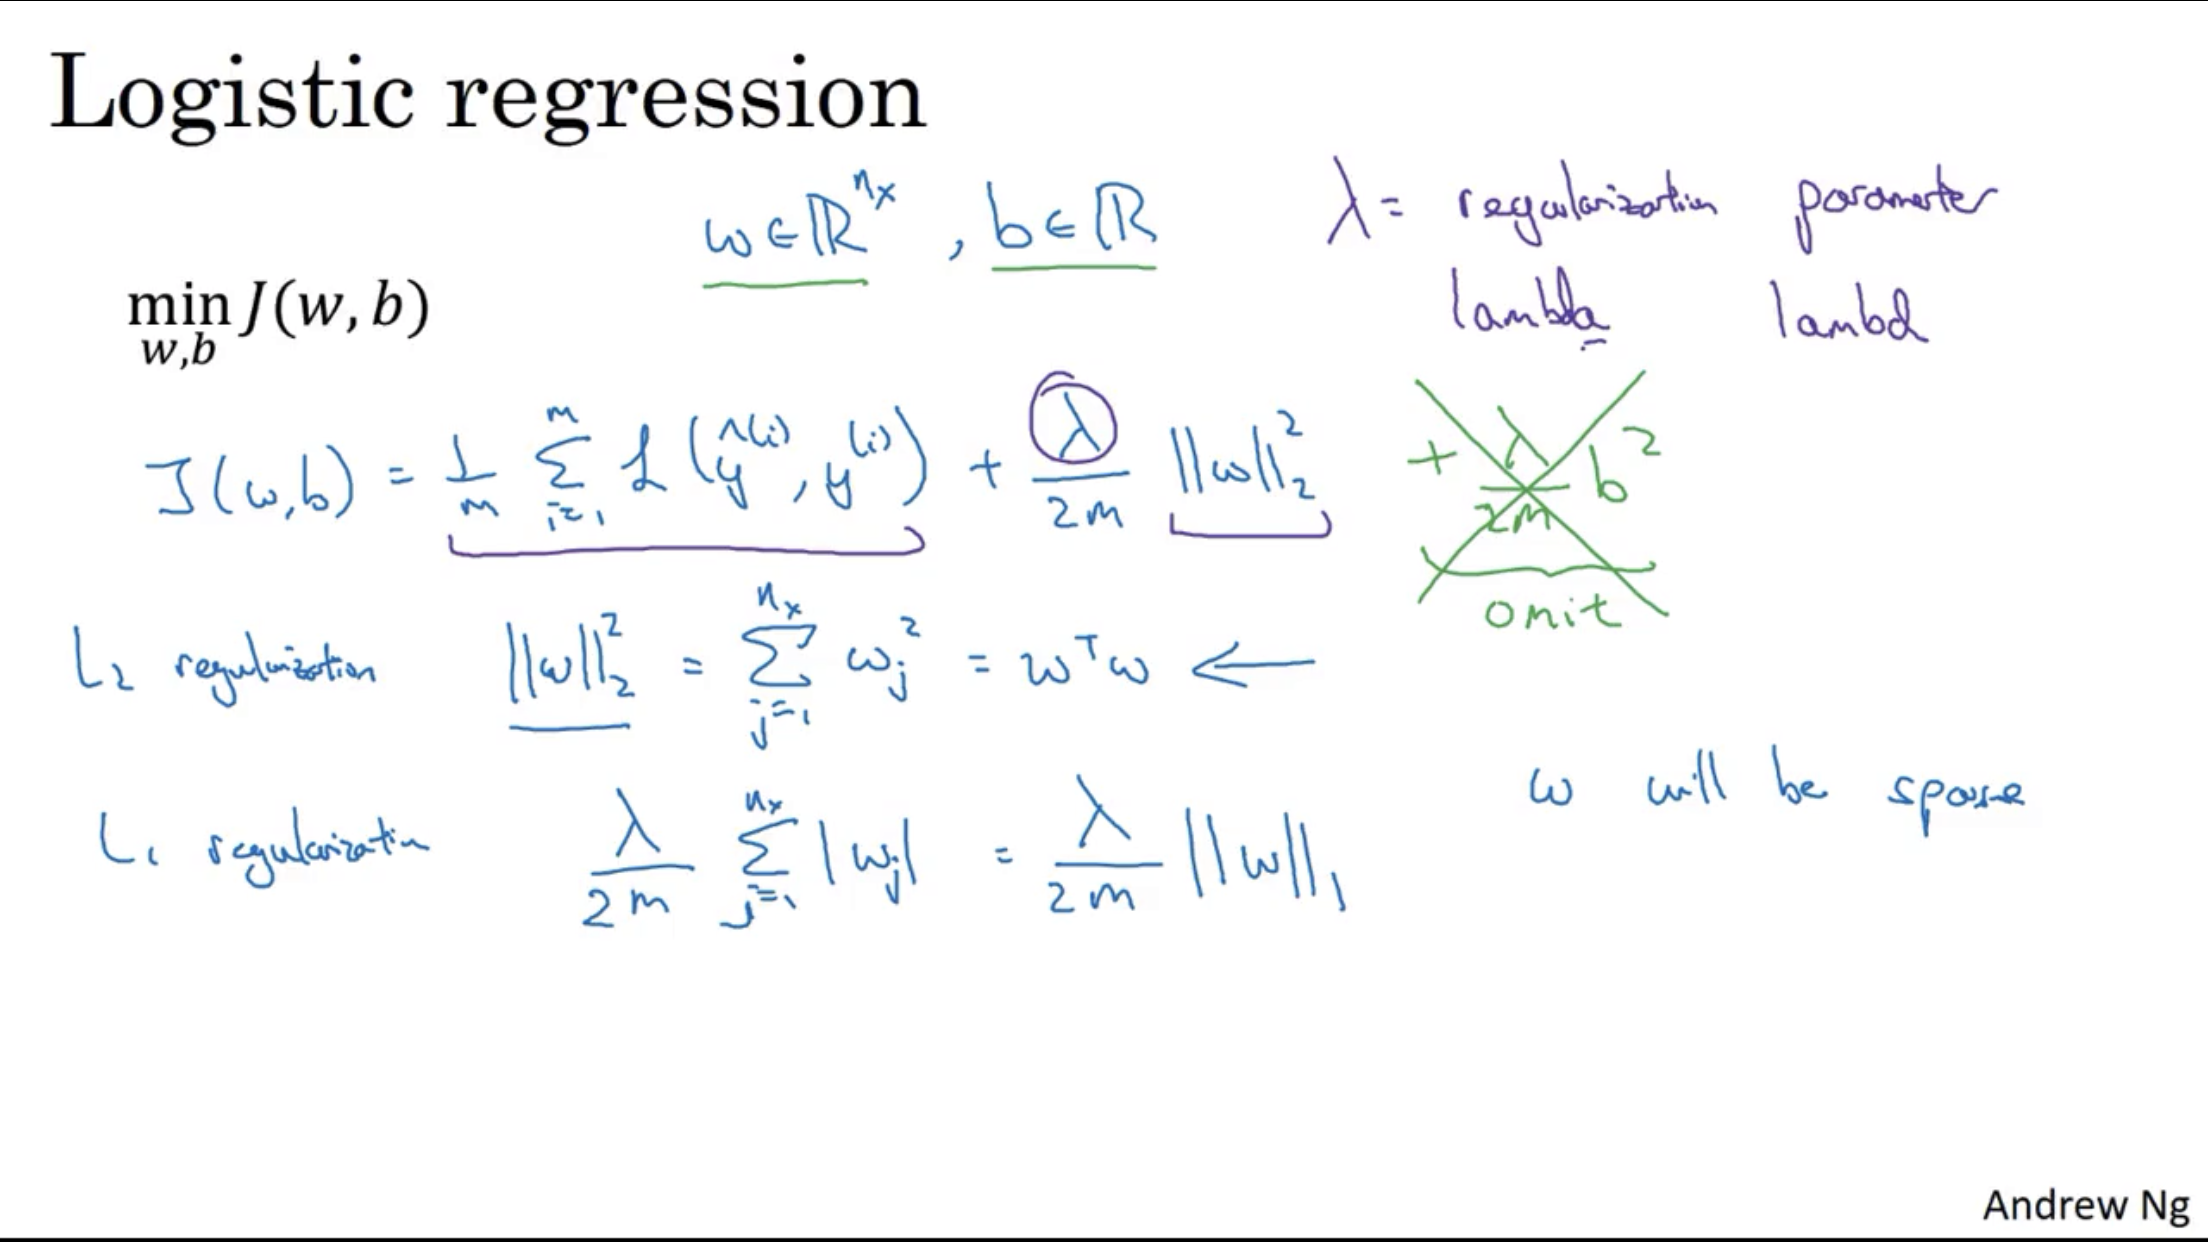 Logistic regression
w ∈ ℝ^{n_x}, b ∈ ℝ
λ = regularization parameter
lambda lambd
min_{w,b} J(w, b)
J(w,b) = \frac{1}{m} \sum_{i=1}^{m} ℒ(ŷ^{(i)}, y^{(i)}) + \frac{λ}{2m} ||w||_2^2 + \frac{λ}{2m} b^2
omit
L₂ regularization ||w||_2^2 = \sum_{j=1}^{n_x} w_j^2 = w^T w ←
w will be sparse
L₁ regularization \frac{λ}{2m} \sum_{j=1}^{n_x} |w_j| = \frac{λ}{2m} ||w||_1
Andrew Ng